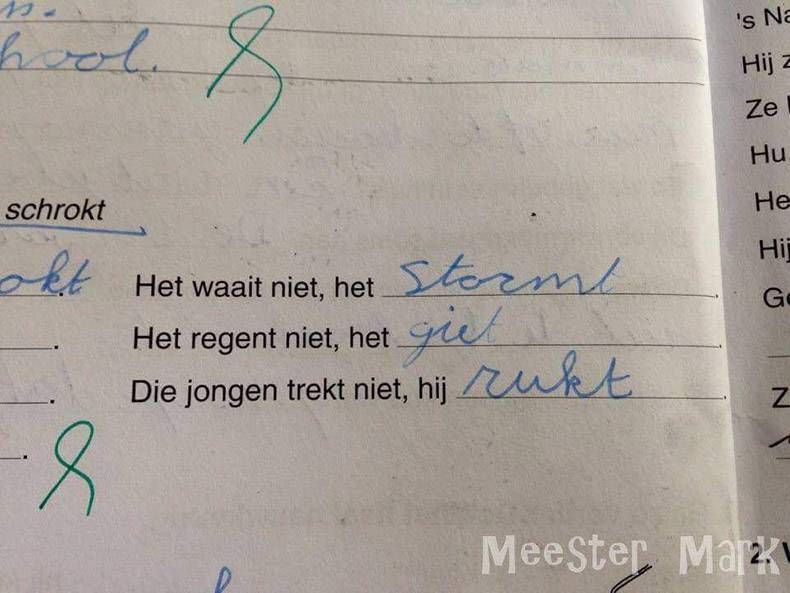 hool.
schrokt
okt
Het waait niet, het stormt.
Het regent niet, het giet.
Die jongen trekt niet, hij rukt.
's Na
Hij z
Ze
Hu
He
Hij
Ge
Z
2.
Meester Mark